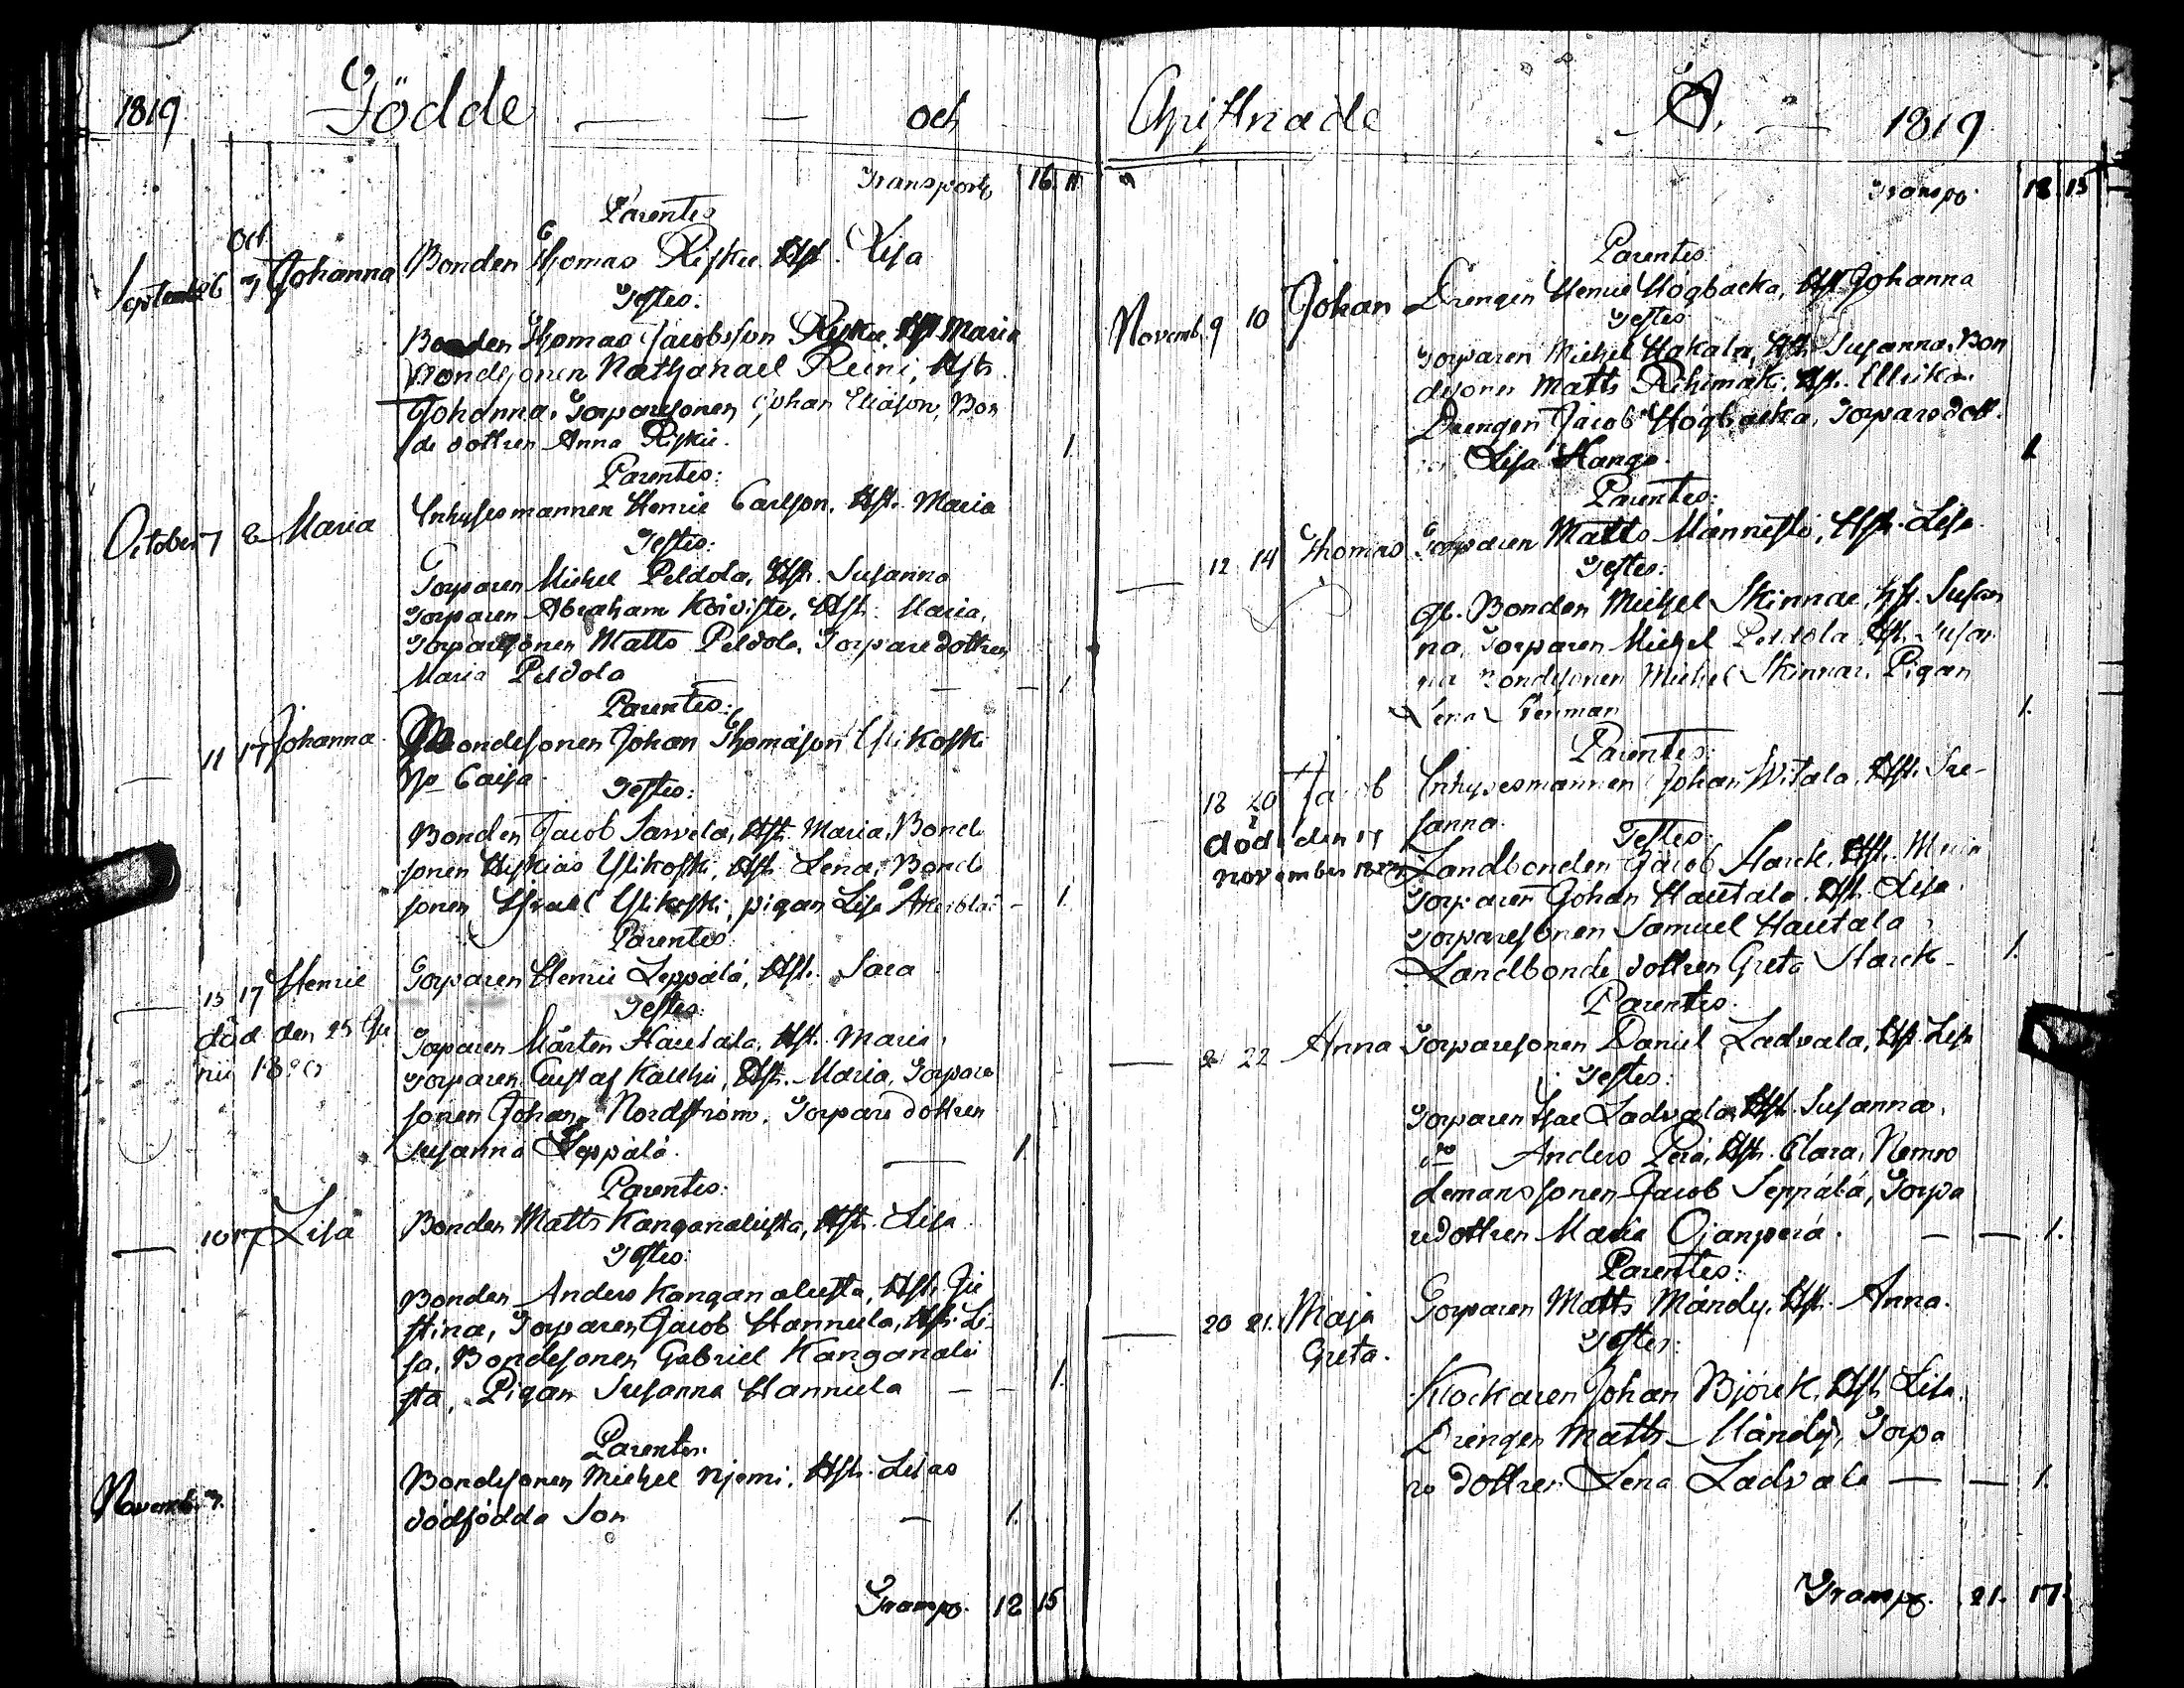 1819 Födde och
Transport 16. 11
Parentes
Oct.
September 26 3 Johanna Bonden Thomas Risku Hst. Lisa
Testes:
Bonden Thomas Jacobsson Risku, Hst. Maria
Bondesonen Nathanael Reini, Hst.
Johanna, Torparesonen Johan Eliason, Bon
de dottren Anna Risku. 1
Parentes:
October 7 8 Maria Inhysesmannen Henric Carlson, Hst. Maria
Testes:
Torparen Michel Peldola, Hst. Susanna
Torparen Abraham Koivisto, Hst. Maria,
Torparesonen Matts Peldola, Torparedottren
Maria Peldola 1
Parentes:
11 17 Johanna Bondesonen Johan Thomason Ylikoski
Caisa
Testes:
Bonden Jacob Sarvela, Hst. Maria, Bonde
sonen Hiskias Ylikoski, Hst. Lena, Bonde
sonen Israel Ylikoski, pigan Lisa 1.
Parentes
15 17 Henric Torparen Henric Leppälä, Hst. Sara
Testes:
död den 25 Ju
nii Torparen Mårten Hautala, Hst. Maria,
Torparen Gustaf Kaukii, Hst. Maria, Torpare
sonen Johan Nordström, Torpare dottren
Susanna Leppälä. 1.
Parentes:
10 17 Lisa Bonden Matts Kanganalusta, Hst. Lisa
Testes:
Bonden Anders Kanganalusta, Hst. Ju
stina, Torparen Jacob Hannula, Hst. Li
sa, Bondesonen Gabriel Kanganalu
sta, Pigan Susanna Hannula 1.
Parentes:
Bondesonen Michel Njemi, Hst. Lisas
Novemb. 3. dödfödda Son 1.
Transp. 18 15
Christnade A. 1819
Transp. 18 15
Parentes
Novemb. 9 10 Johan Drengen Henric Högbacka, Hst. Johanna
Testes
Torparen Michel Hakala, Hst. Susanna, Bon
desonen Matts Rihimäki, Hst. Ullrika
Drengen Jacob Högbacka, Torparedott
Lisa Kango. 1
Parentes:
12 14 Thomas Torparen Matts Männistö, Hst. Lisa
Testes:
Gl. Bonden Michel Skinnar, Hst. Susan
na, Torparen Michel Peldola, Hst. Susan
na Bondesonen Michel Skinnar, Pigan
Lena Tenman 1.
Parentes:
18 20 Jacob Inhysesmannen Johan Witala, Hst. Su-
sanna.
död den 17
november Testes:
Landbonden Jacob Harck, Hst. Maria
Torparen Johan Hautala, Hst. Lisa
Torparesonen Samuel Hautala
Landbonde dottren Greta Harck 1.
Parentes:
21 22 Anna Torparesonen Daniel Ladvala, Hst. Lisa
Testes:
Torparen Isac Ladvala, Hst. Susanna,
do Anders Perä, Hst. Clara, Nemn
demanssonen Jacob Seppälä, Torpa
redottren Maria Ojanperä. 1.
Parentes:
20 21. Maja
Greta. Torparen Matts Mándy, Hst. Anna.
Testes:
Klockaren Johan Björck, Hst. Lisa,
Drengen Matts Mándy, Torpa
re dottren Lena Ladvala 1.
Transp. 21. 17.